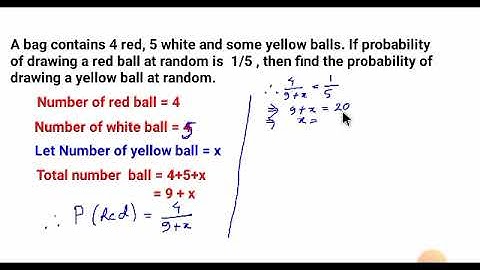 A bag contains 4 red, 5 white and some yellow balls. If probability
of drawing a red ball at random is 1/5 , then find the probability of
drawing a yellow ball at random.
Number of red ball = 4
Number of white ball = 5
Let Number of yellow ball = x
Total number ball = 4+5+x
= 9 + x
∴ P (Red) = 4/(9+x)
∴ 4/(9+x) = 1/5
⇒ 9+x = 20
⇒ x =